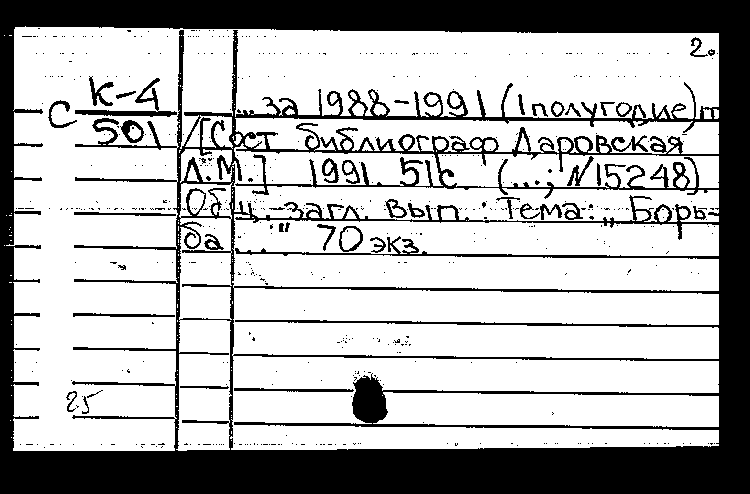 2.
С К-4
501
... за 1988-1991 (1 полугодие) гг
/[Сост. библиограф Даровская
Л.М.] 1991. 51с. (...; №15248).
Общ. загл. вып.: Тема: „Борь-
ба ..." 70 экз.
25